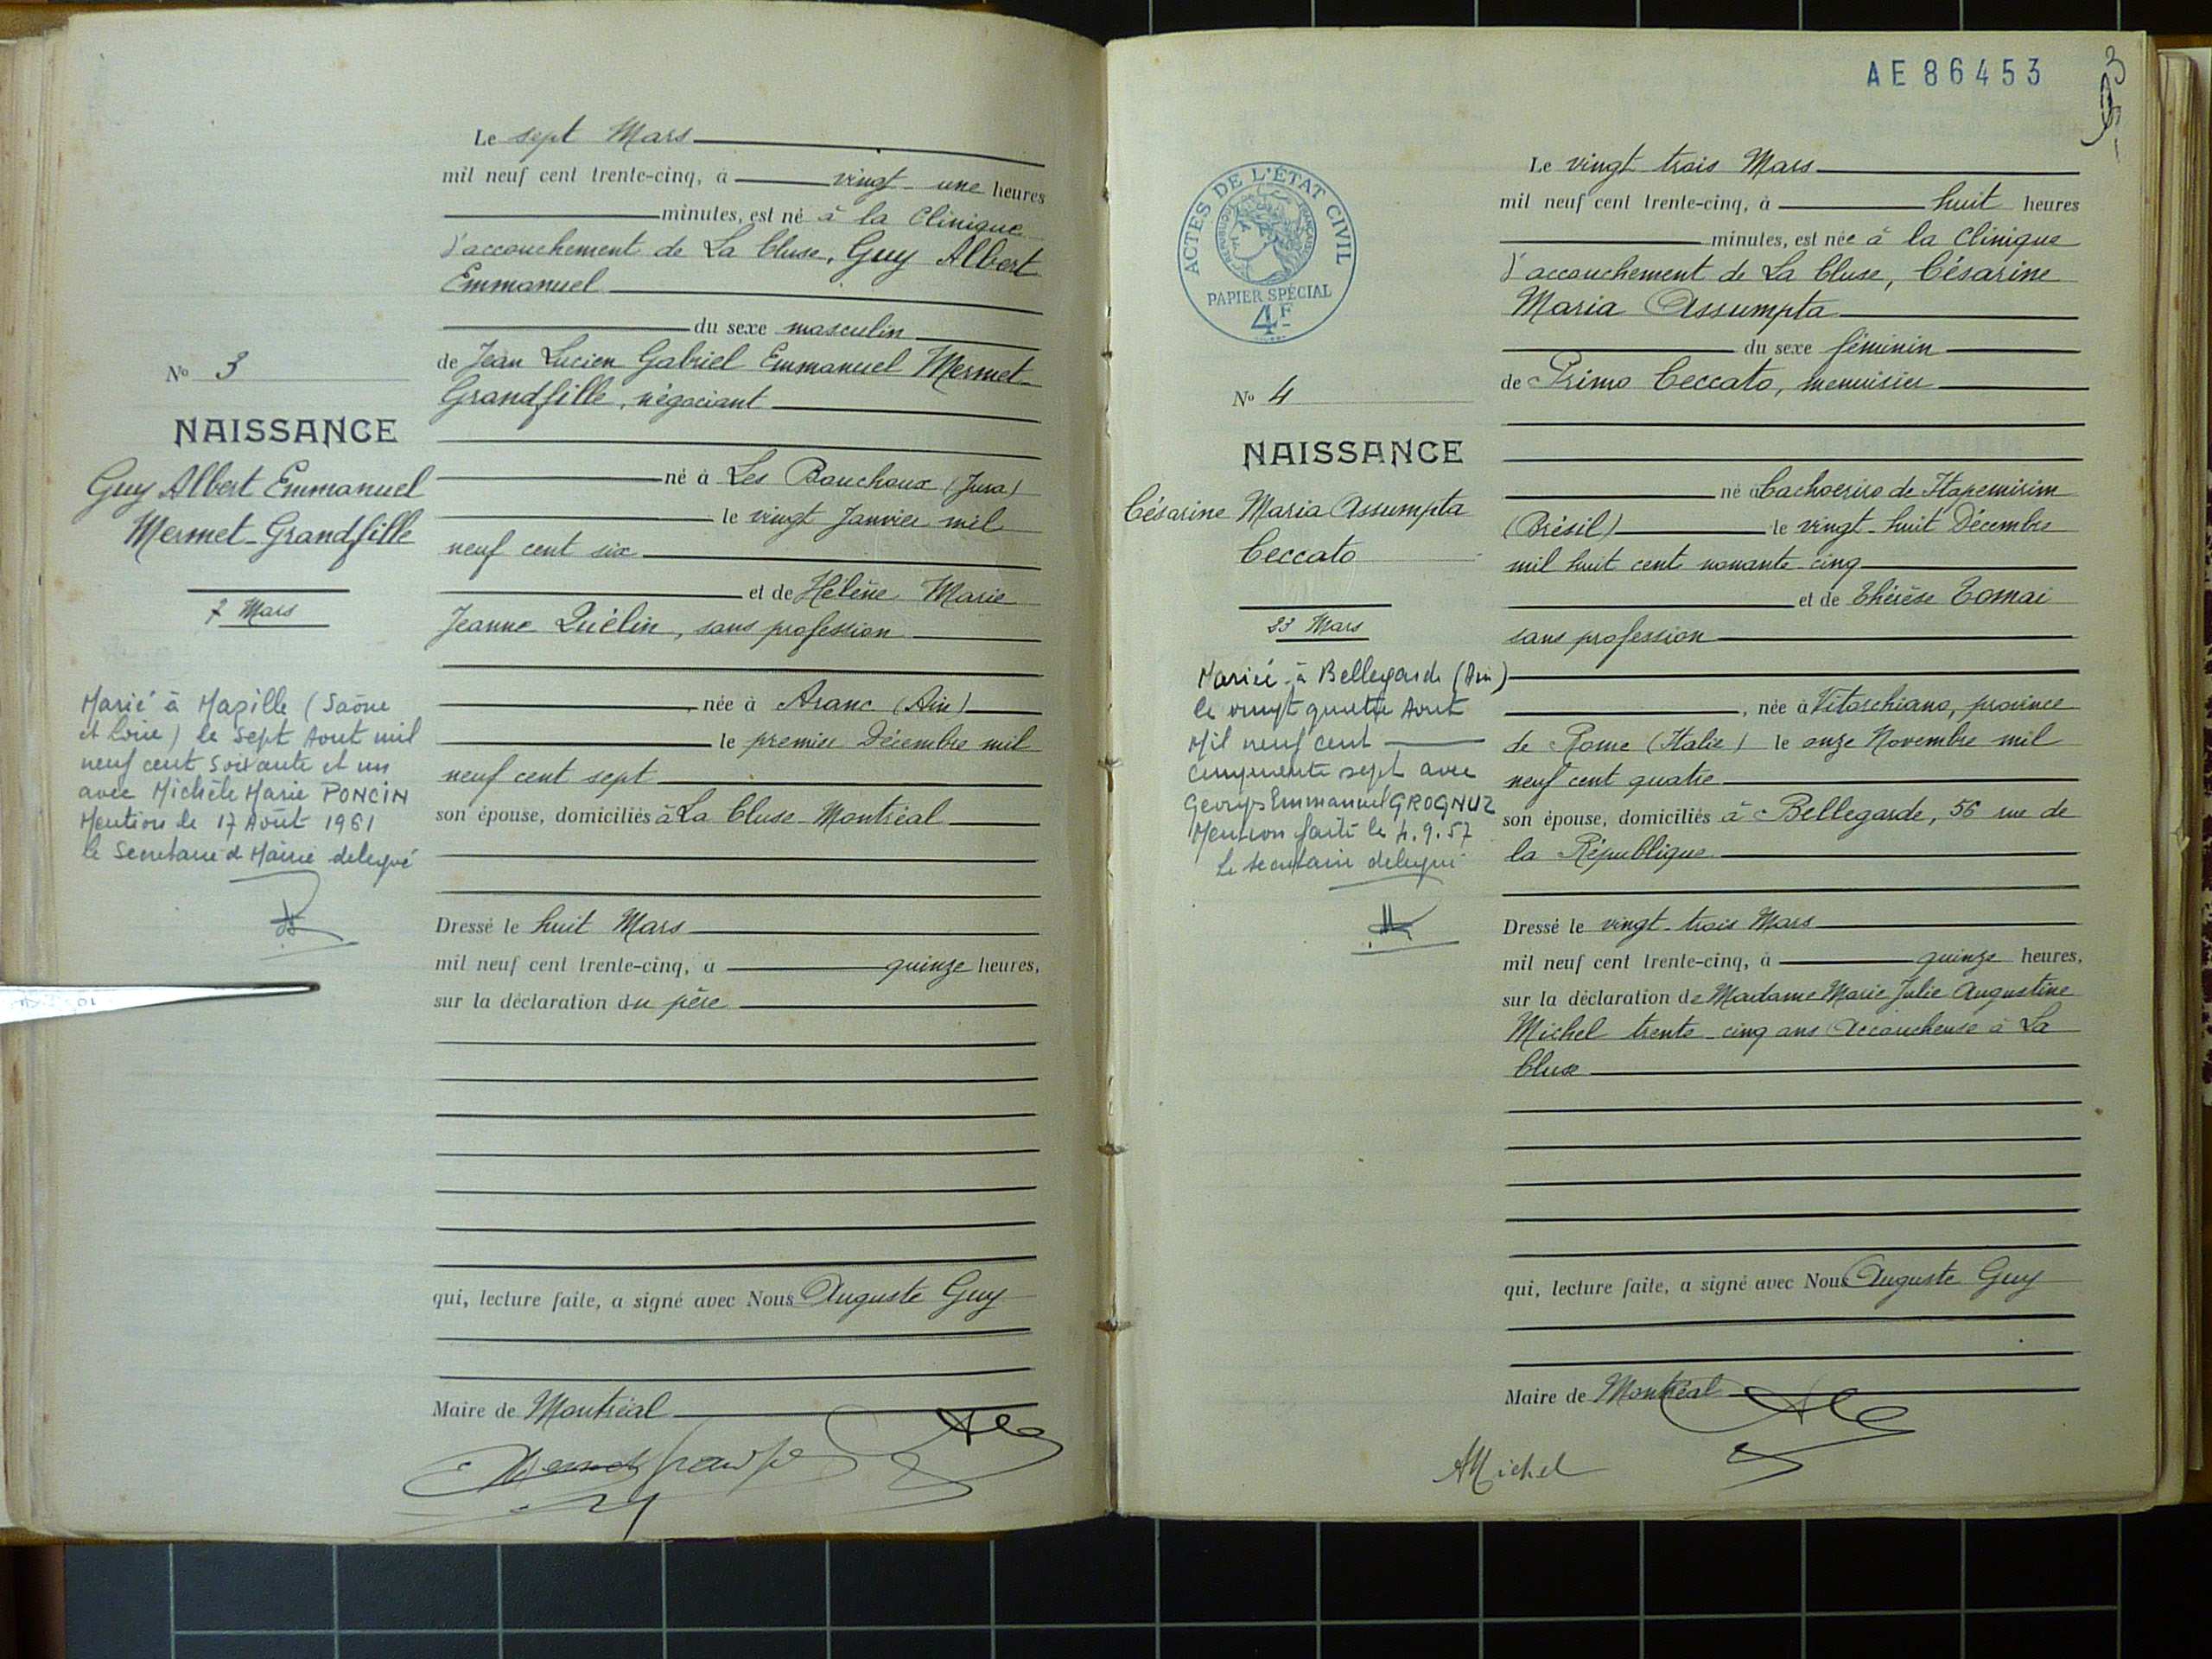 Le sept Mars
mil neuf cent trente-cinq, à vingt une heures
minutes, est né à la Clinique
d'accouchement de La Cluse, Guy Albert
Emmanuel
du sexe masculin
de Jean Lucien Gabriel Emmanuel Mermet-
Grandfille, négociant
né à Les Bouchoux (Jura)
le vingt Janvier mil
neuf cent six
et de Hélène Marie
Jeanne Quélin, sans profession
née à Aranc (Ain)
le premier Décembre mil
neuf cent sept
son épouse, domiciliés à La Cluse-Montréal
Dressé le huit Mars
mil neuf cent trente-cinq, à quinze heures,
sur la déclaration du père
qui, lecture faite, a signé avec Nous Auguste Guy
Maire de Montréal
No 3
NAISSANCE
Guy Albert Emmanuel
Mermet-Grandfille
7 Mars
Marié à Mazille (Saône
et Loire) le sept Aout mil
neuf cent soixante et un
avec Michèle Marie PONCIN
Mention le 17 Août 1961
le Secretaire de Mairie delegué
AE86453
ACTES DE L'ÉTAT CIVIL
RÉPUBLIQUE FRANÇAISE
PAPIER SPÉCIAL
4F
Le vingt trois Mars
mil neuf cent trente-cinq, à huit heures
minutes, est née à la Clinique
d'accouchement de La Cluse, Césarine
Maria Assumpta
du sexe féminin
de Primo Ceccato, menuisier
né à Cachoeriro de Itapemirim
(Brésil) le vingt-huit Décembre
mil huit cent nonante-cinq
et de Thérèse Tomai
sans profession
, née à Vitorchiano, province
de Rome (Italie) le onze Novembre mil
neuf cent quatre
son épouse, domiciliés à Bellegarde, 56 rue de
la République
Dressé le vingt-trois Mars
mil neuf cent trente-cinq, à quinze heures,
sur la déclaration de Madame Marie Julie Augustine
Michel trente-cinq ans Accoucheuse à La
Cluse
qui, lecture faite, a signé avec Nous Auguste Guy
Maire de Montréal
AMichel
No 4
NAISSANCE
Césarine Maria Assumpta
Ceccato
23 Mars
Mariée à Bellegarde (Ain)
le vingt quatre Aout
Mil neuf cent
cinquante sept avec
Georges Emmanuel GROGNUZ
Mention faite le 4.9.57
Le secretaire delegué